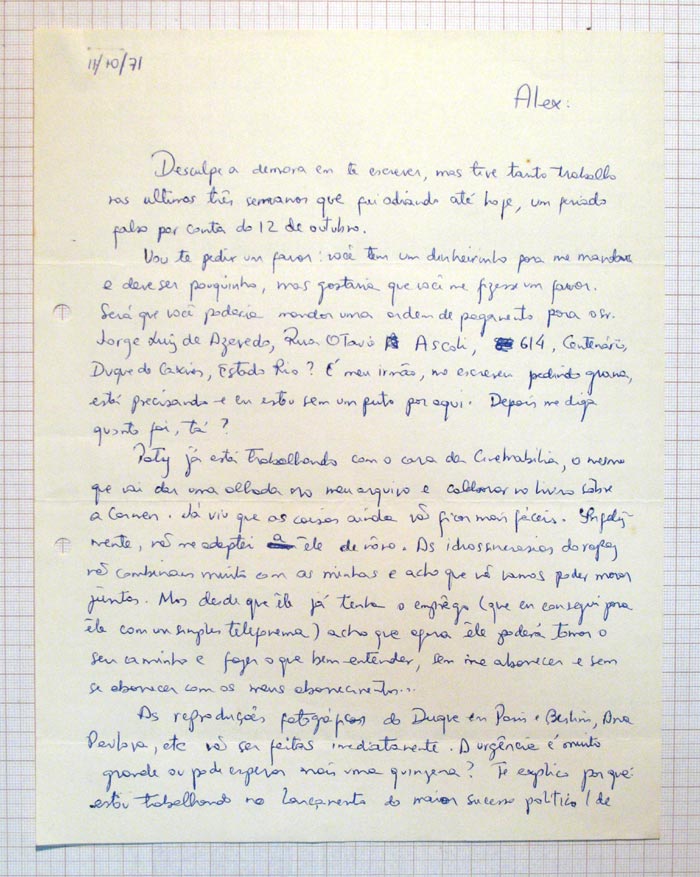 11/10/71
Alex:
Desculpe a demora em te escrever, mas tive tanto trabalho
nas ultimas três semanas que fui adiando até hoje, um feriado
falso por conta do 12 de outubro.
Vou te pedir um favor: você tem um dinheirinho para me mandar
e deve ser pouquinho, mas gostaria que você me fizesse um favor.
Será que você poderia mandar uma ordem de pagamento para o sr.
Jorge Luiz de Azevedo, Rua Otavio Ascoli, 614, Centenário,
Duque de Caxias, Estado Rio? É meu irmão, me escreveu pedindo grana,
está precisando e eu estou sem um puto por aqui. Depois me diga
quanto foi, tá?
já está trabalhando com o cara da Cinemabilia, o mesmo
que vai dar uma olhada no meu arquivo e colaborar no livro sôbre
a Carmen. Já vi que as coisas ainda vão ficar mais fáceis. Infeliz-
mente, não me adaptei a êle de nôvo. As idiossincrasias do rapaz
não combinam muito com as minhas e acho que não vamos poder morar
juntos. Mas desde que êle já tenha o emprêgo (que eu consegui para
êle com um simples telefonema) acho que agora êle poderá tomar o
seu caminho e fazer o que bem entender, sem me aborrecer e sem
se aborrecer com os meus aborrecimentos...
As reproduções fotográficas do Duque em Paris e Berlim, Ana
Pavlova, etc vão ser feitas imediatamente. A urgência é muito
grande ou pode esperar mais uma quinzena? Te explico por quê:
estou trabalhando no lançamento do maior sucesso político / de